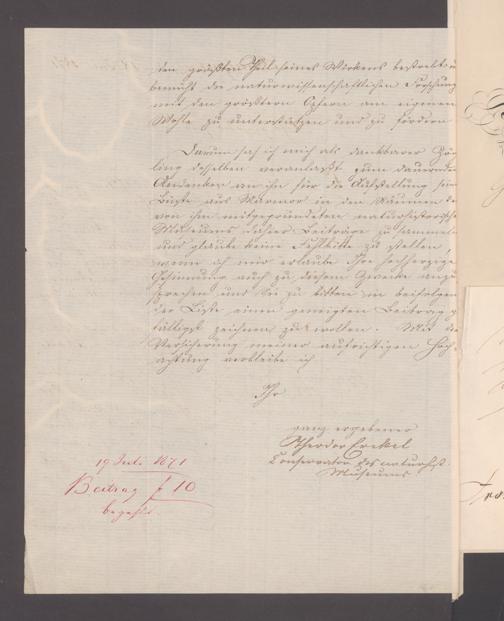 den größten Theil seines Wirkens bestrebt
bemüht die naturwissenschaftlichen Forschung
mit den größten Opfern am eigenen
Wohle zu unterstützen und zu fördern
Darum sah ich mich als dankbarer Zög-
ling desselben veranlaßt zum dauernden
Andenken an ihn für die Aufstellung sein
Büste aus Marmor in den Räumen de
von ihm mitgegründeten naturhistorische
Museums daher Beiträge zu sammeln
und glaube keine Fehlbitte zu stellen,
wenn ich mir erlaube Ihre hochherzige
Gesinnung auch zu diesem Zwecke anzu
sprechen und Sie zu bitten in beifolgen
der Liste einen geneigten Beitrag g
fälligst zeichnen zu wollen. Mit de
Versicherung meiner aufrichtigen Hoch-
achtung verbleibe ich
Ihr
ganz ergebener
Theodor Erckel
Conservator des naturhist.
Museums
19 Juli 1871
Beitrag f 10
bezahlt.